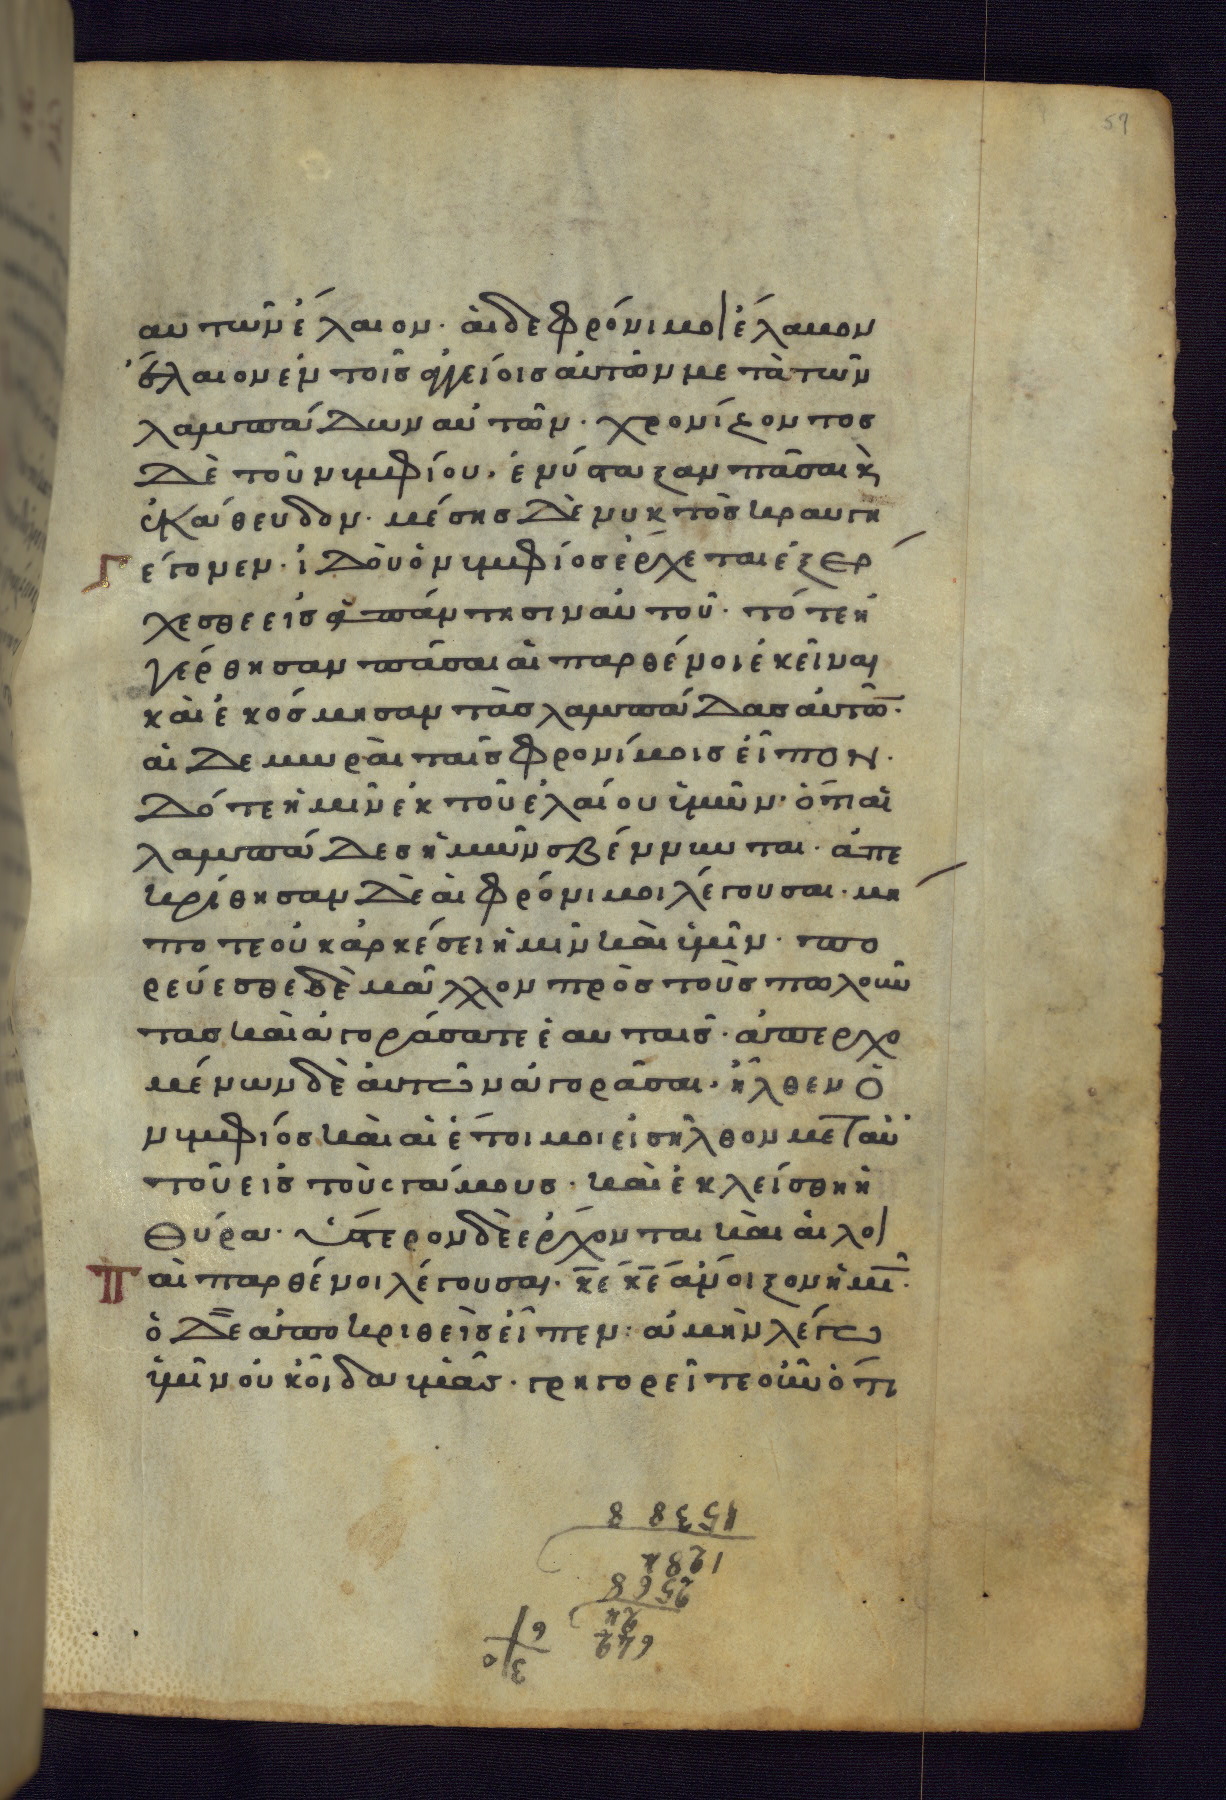 57
αυτῶν ἔλαιον. ἁι δε φρόνιμοι ἔλαμον
ἔλαιον ἐν τοῖς ἀγγείοις ἀυτῶν μετὰ τῶν
λαμπάδων αὐτῶν. χρονίζοντος
Δὲ τοῦ νυμφίου. ἐνύσταξαν πᾶσαι κὶ
ἐκάθευδον. μέσης Δὲ νυκτὸς κραυγη
γέγονεν. ἰδοὺ ὁ νυμφίος ἔρχεται ἐξερ
χεσθε εἰς ἀπάντησιν αὐτοῦ. τότε ἠ
γέρθησαν πᾶσαι αἱ παρθένοι ἐκεῖναι
καὶ ἐκόσμησαν τὰς λαμπάδας ἀυτῶ̅.
αἱ Δε μωρὰι ταῖς φρονίμοις εἶπον.
Δότε ἡμῖν ἐκ τοῦ ἐλαίου ὑμῶν. ὅτι αἱ
λαμπάδες ἡμῶν σβέννυνται. ἀπε
κρίθησαν Δὲ αἱ φρόνιμοι λέγουσαι. μη
ποτε οὐκ ἀρκέσει ἡμῖν καὶ ὑμῖν. πο
ρεύεσθε δὲ μᾶλλον πρὸς τοὺς πωλοῦν
τας καὶ ἀγοράσατε ἑαυταῖς. ἀπερχο
μένων δὲ ἀυτῶν ἀγορᾶσαι. ἦλθεν ὁ
νυμφίος καὶ αἱ ἕτοιμοι εἰσῆλθον μετ αὐ
τοῦ εἰς τοὺς γάμους. καὶ ἐκλείσθη ἡ
θύρα. ὕστερον δὲ ἐρχονται καὶ αἱ λοι
παὶ παρθένοι λέγουσαι. κ̅ε κ̅ε ἄνοιξον ἡμῖ̅.
ὁ Δὲ ἀποκριθεὶς εἶπεν: ἀμὴν λέγω
ὑμῖν οὐκ οἶδα ὑμᾶς. γρηγορεῖτε οὖν ὅτι
642
24
2568
1284
15388
6
3 0